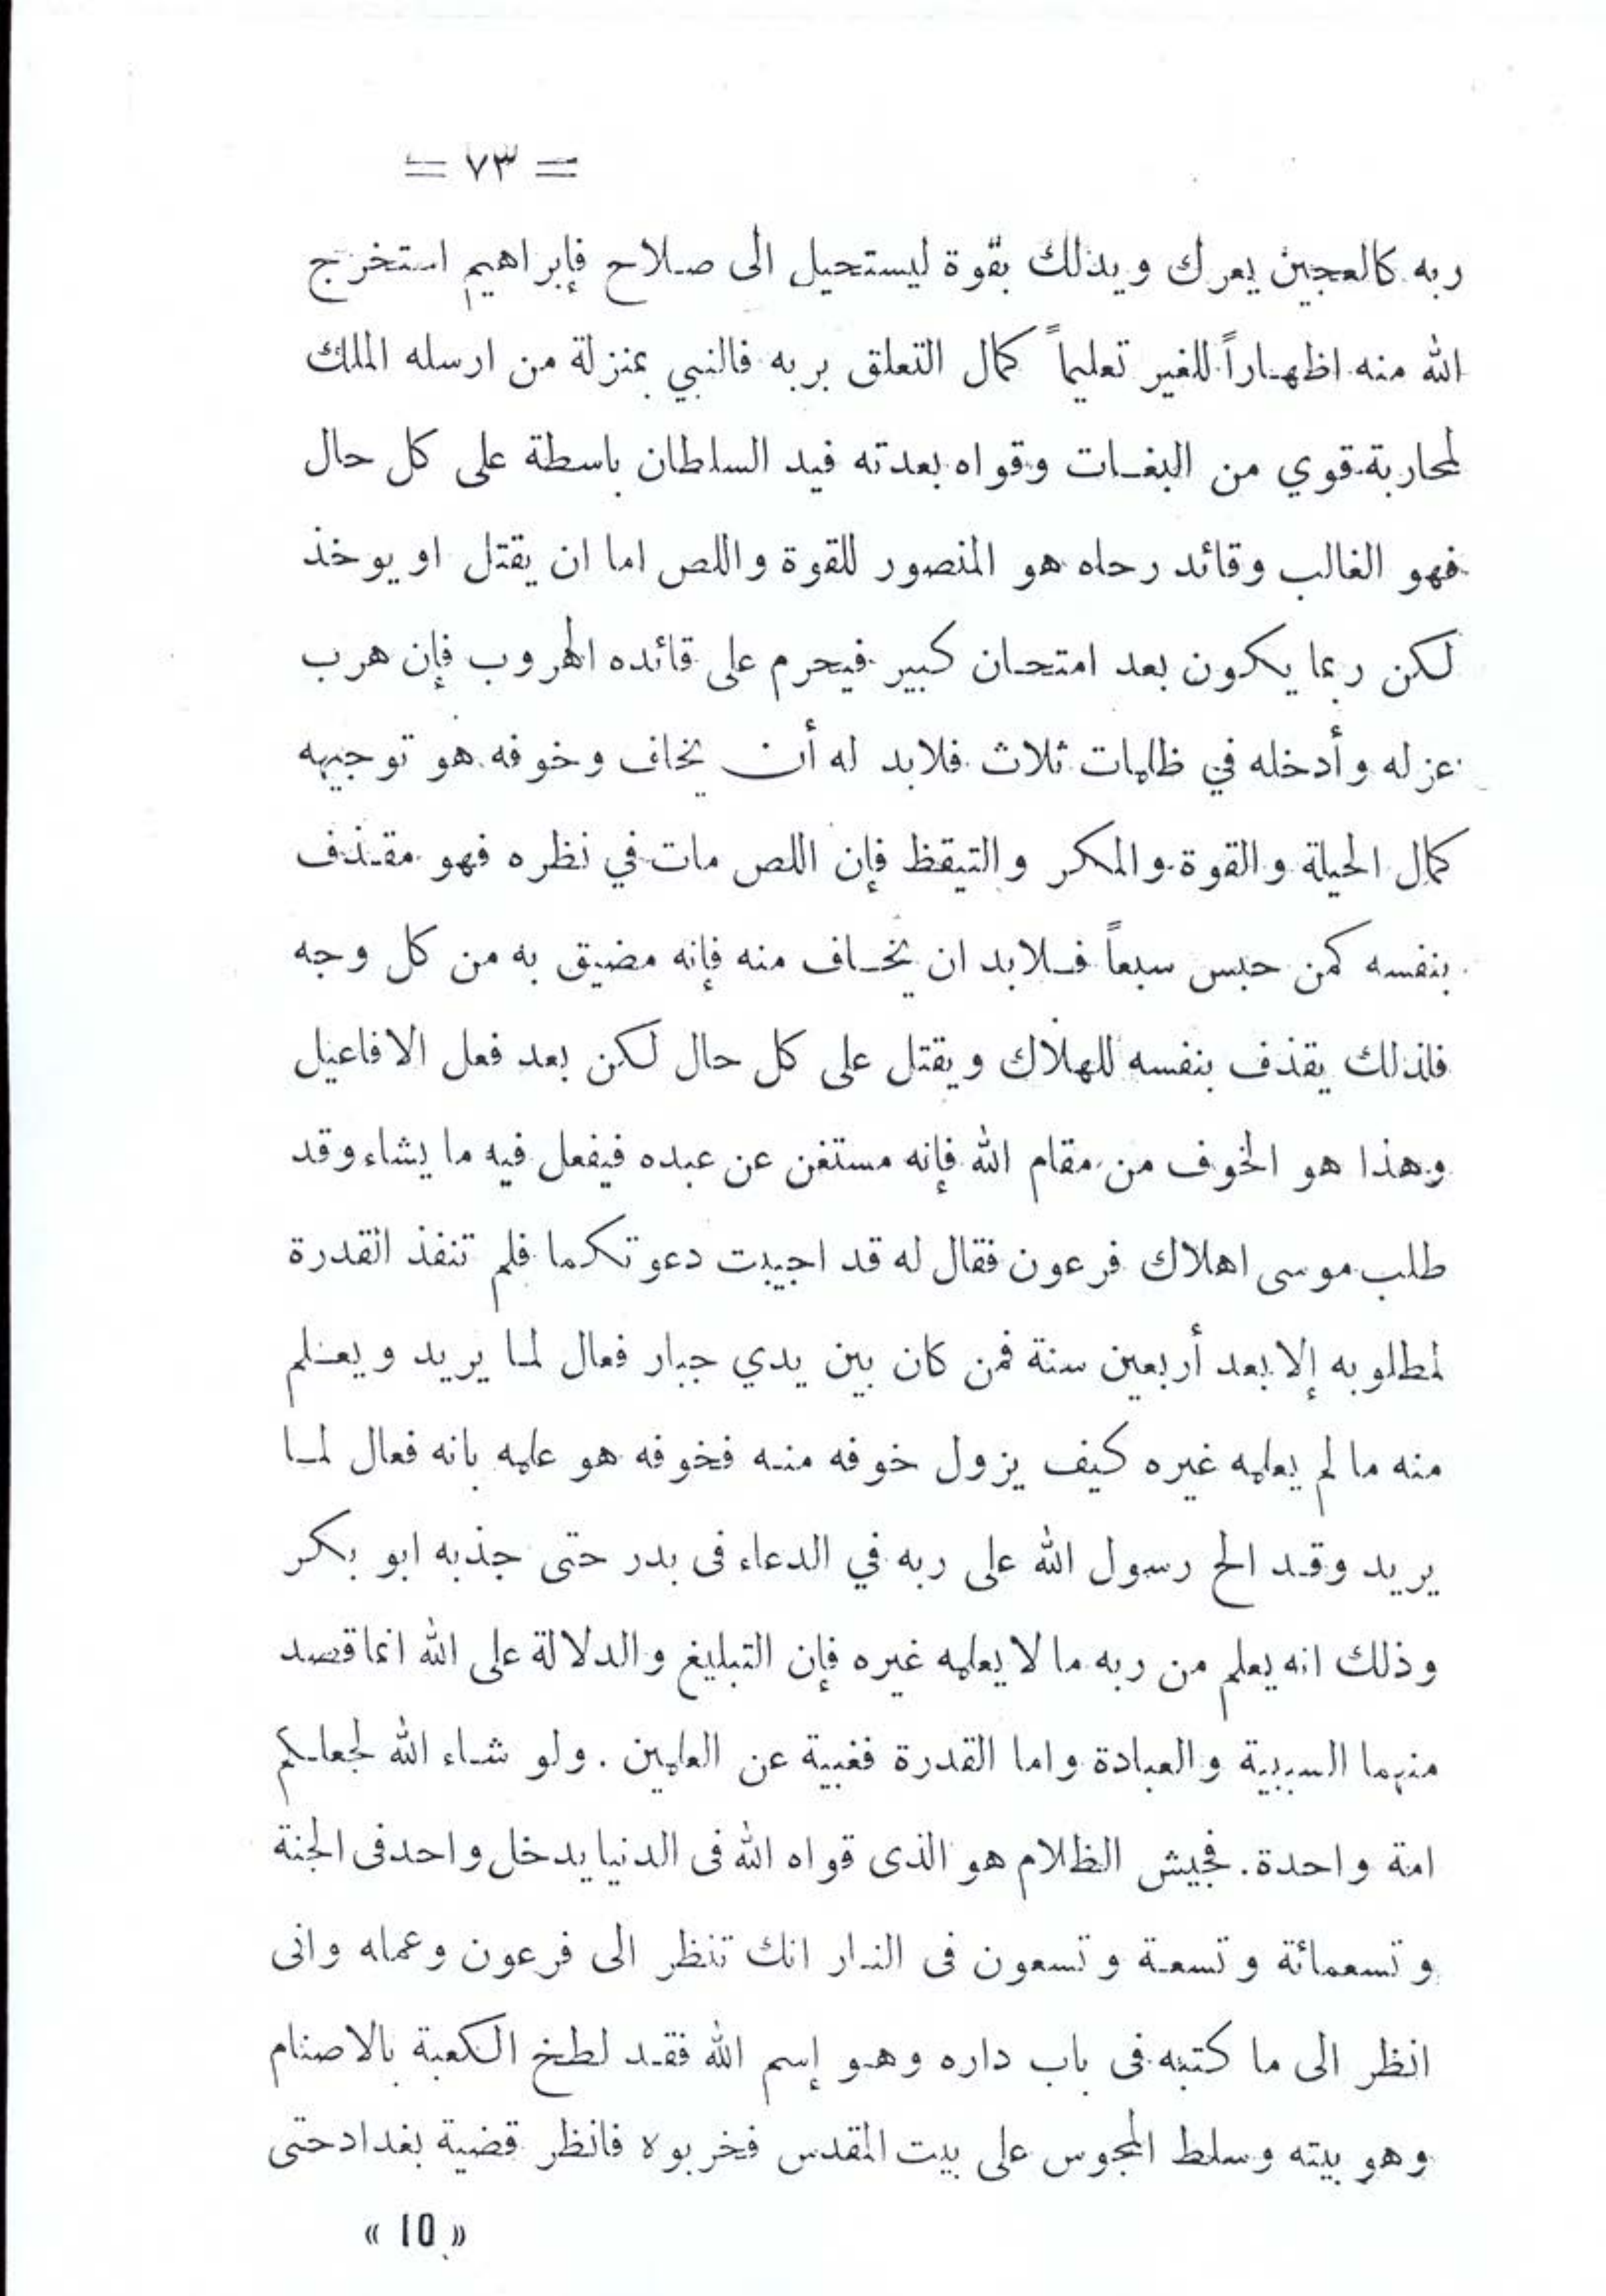 = ٧٣ =
ربه كالعجين يعرك ويدلك بقوة ليستحيل الى صلاح فإبراهيم استخرج
الله منه اظهاراً للغير تعليماً كمال التعلق بربه فالنبي بمنزلة من ارسله الملك
لمحاربة قوي من البغات وقواه بعدته فيد السلطان باسطة على كل حال
فهو الغالب وقائد رحاه هو المنصور للقوة واللص اما ان يقتل او يوخذ
لكن ربما يكون بعد امتحان كبير فيحرم على قائده الهروب فإن هرب
عزله وأدخله في ظلمات ثلاث فلابد له أن يخاف وخوفه هو توجيهه
كمال الحيلة والقوة والمكر والتيقظ فإن اللص مات في نظره فهو مقذف
بنفسه كمن حبس سبعاً فلابد ان يخاف منه فإنه مضيق به من كل وجه
فلذلك يقذف بنفسه للهلاك ويقتل على كل حال لكن بعد فعل الافاعيل
وهذا هو الخوف من مقام الله فإنه مستغن عن عبده فيفعل فيه ما يشاء وقد
طلب موسى اهلاك فرعون فقال له قد اجيبت دعوتكما فلم تنفذ القدرة
لمطلوبه إلا بعد أربعين سنة فمن كان بين يدي جبار فعال لما يريد ويعلم
منه ما لم يعلمه غيره كيف يزول خوفه منه فخوفه هو علمه بانه فعال لما
يريد وقد الح رسول الله على ربه في الدعاء فى بدر حتى جذبه ابو بكر
وذلك انه يعلم من ربه ما لا يعلمه غيره فإن التبليغ والدلالة على الله انما قصد
منهما السببية والعبادة واما القدرة فغيبة عن العلمين . ولو شاء الله لجعلكم
امة واحدة. فجيش الظلام هو الذى قواه الله فى الدنيا يدخل واحد فى الجنة
وتسعمائة وتسعة وتسعون فى النار انك تنظر الى فرعون وعمله وانى
انظر الى ما كتبه فى باب داره وهو إسم الله فقد لطخ الكعبة بالاصنام
وهو بيته وسلط المجوس على بيت المقدس فخربوه فانظر قضية بغداد حتى
« 10 »